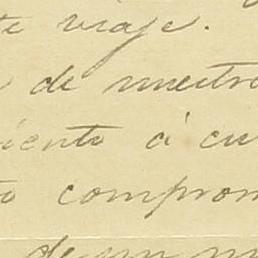 te viaje.
de nuestro
iento á cu
to comprom
de un